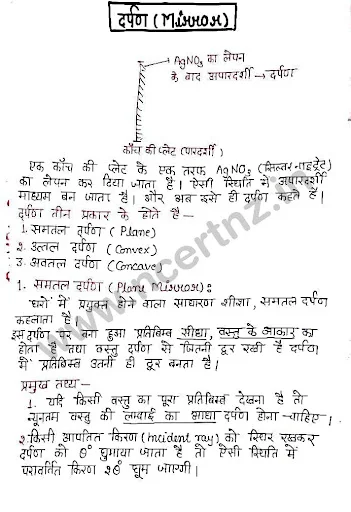 दर्पण (Mirror)
AgNO₃ का लेपन
के बाद अपारदर्शी → दर्पण
काँच की प्लेट (पारदर्शी)
एक काँच की प्लेट के एक तरफ AgNO₃ (सिल्वर नाइट्रेट)
का लेपन कर दिया जाता है। ऐसी स्थिति में अपारदर्शी
माध्यम बन जाता है। और अब इसे ही दर्पण कहते हैं।
दर्पण तीन प्रकार के होते हैं—
1. समतल दर्पण (Plane)
2. उत्तल दर्पण (Convex)
3. अवतल दर्पण (Concave)
1. समतल दर्पण (Plane Mirror):
'घरों' में प्रयुक्त होने वाला साधारण शीशा, समतल दर्पण
कहलाता है।
इस दर्पण पर बना हुआ प्रतिबिम्ब सीधा, वस्तु के आकार का
होता है तथा वस्तु दर्पण से जितनी दूर रखी है दर्पण
में प्रतिबिम्ब उतनी ही दूर बनता है।
प्रमुख तथ्य—
1. यदि किसी वस्तु का पूरा प्रतिबिम्ब देखना है तो
न्यूनतम वस्तु की लम्बाई का आधा दर्पण होना चाहिए।
2. किसी आपतित किरण (Incident ray) को स्थिर रखकर
दर्पण को θ° घुमाया जाता है तो ऐसी स्थिति में
परावर्तित किरण 2θ° घूम जाएगी।
www.ncertnz.in